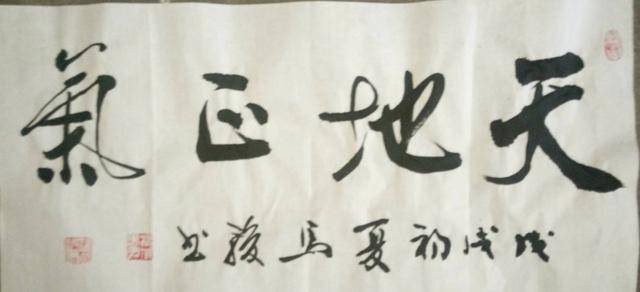 天地正氣
戊戌初夏馬駿书